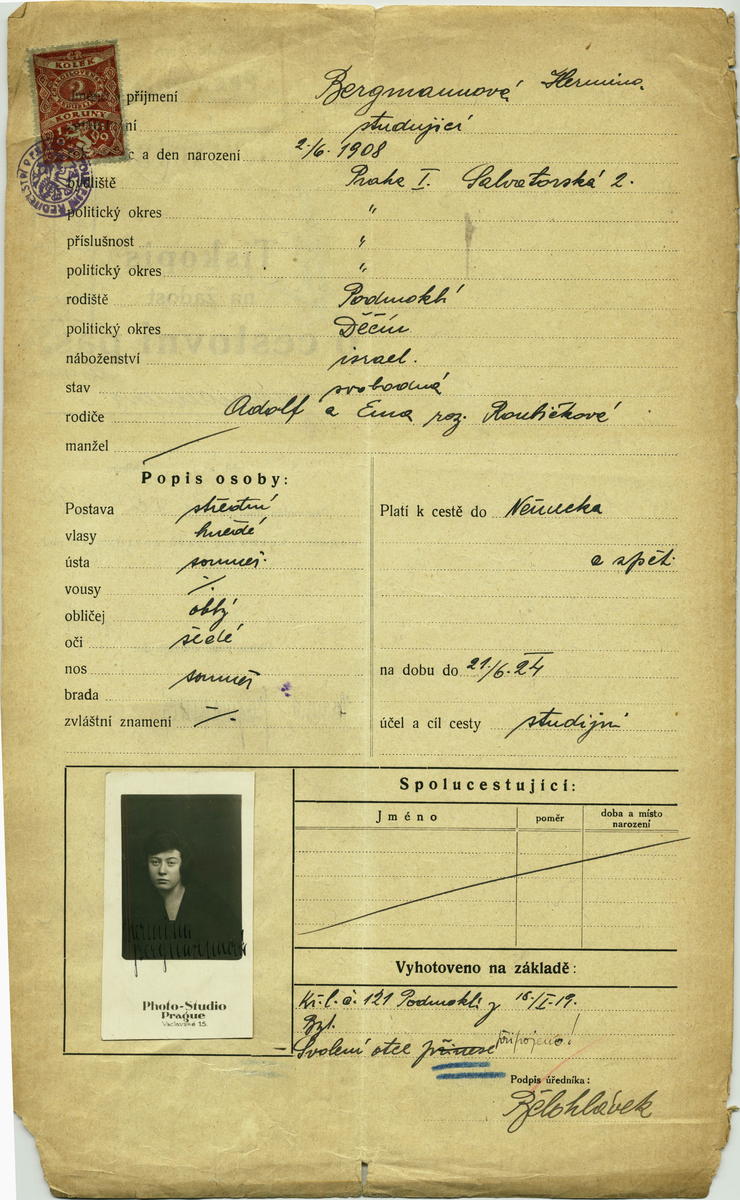 KOLEK
2
KORUNY
příjmení Bergmannová Hermina.
ní studující
c a den narození 2./6. 1908
bydliště Praha I. Salvatorská 2.
politický okres "
příslušnost "
politický okres "
rodiště Podmoklí
politický okres Děčín
náboženství israel.
stav svobodná
rodiče Adolf a Ema roz. Roubíčková
manžel
Popis osoby:
Postava střední
vlasy hnědé
ústa souměr.
vousy ·/.
obličej oblý
oči šedé
nos souměr
brada
zvláštní znamení ·/.
Platí k cestě do Německa
a zpět.
na dobu do 21./6. 24
účel a cíl cesty studijní
Spolucestující:
Jméno poměr doba a místo narození
Hermina
Bergmannová
Photo-Studio
Prague
Václavské 15.
Vyhotoveno na základě:
Kř. l. č. 121 Podmokli z 15./I. 19.
Svolení otce přinese připojeno!
Podpis úředníka:
Bělohlávek